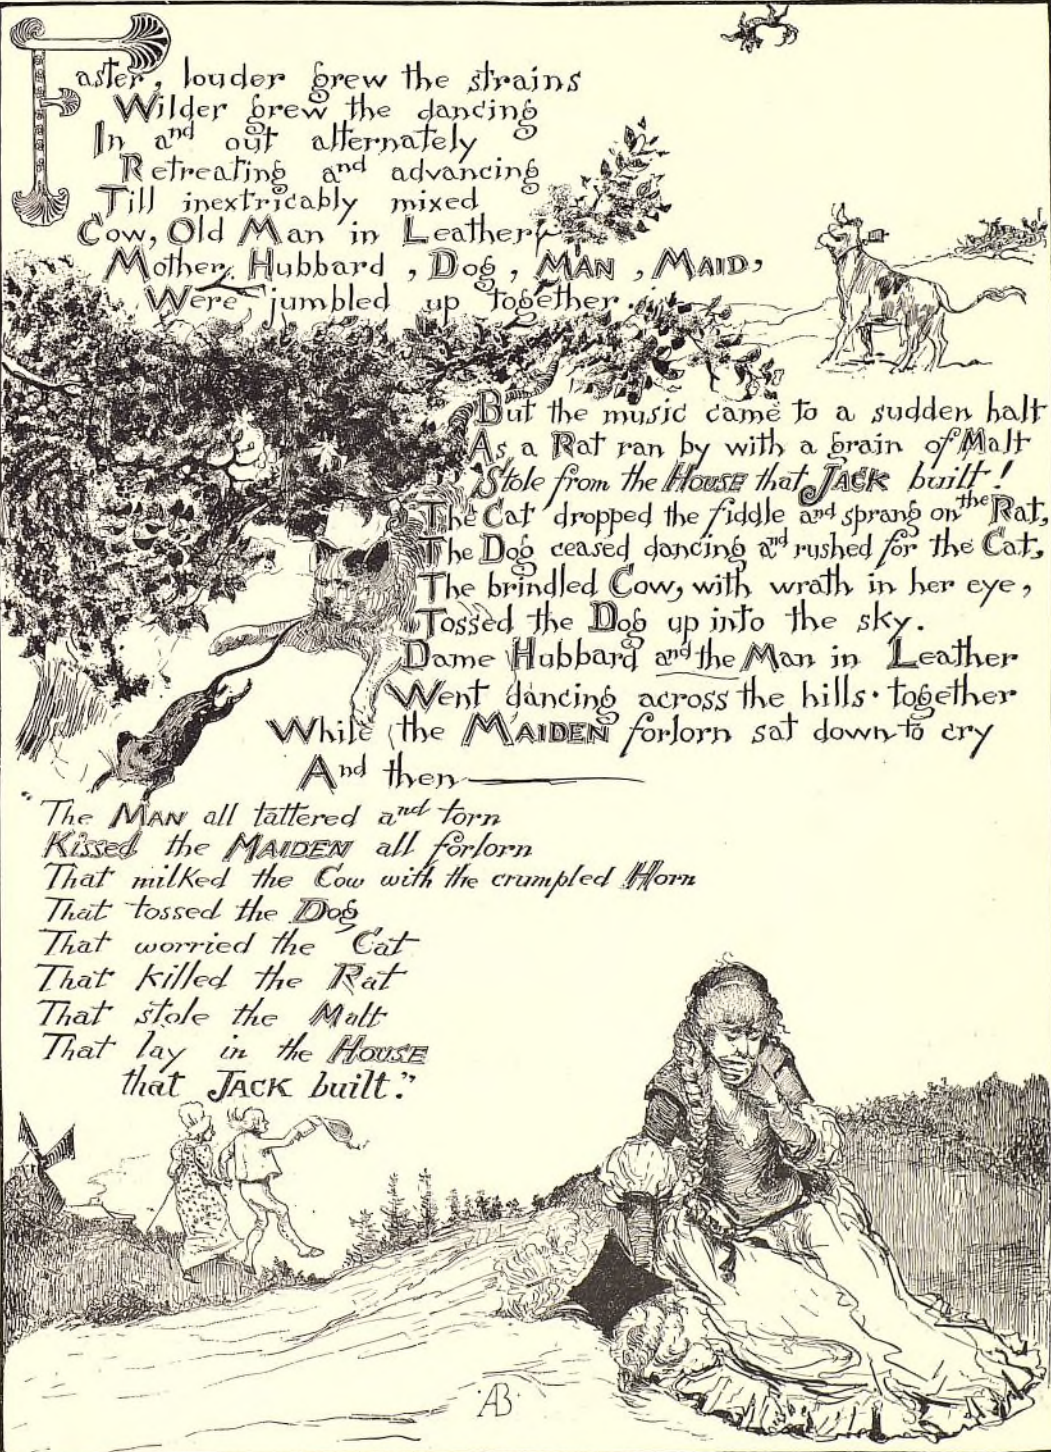 Faster, louder grew the strains
Wilder grew the dancing
In and out alternately
Retreating and advancing
Till inextricably mixed
Cow, Old Man in Leather,
Mother Hubbard, Dog, MAN, MAID,
Were jumbled up together.
But the music came to a sudden halt
As a Rat ran by with a grain of Malt
Stole from the HOUSE that JACK built!
The Cat dropped the fiddle and sprang on the Rat,
The Dog ceased dancing and rushed for the Cat,
The brindled Cow, with wrath in her eye,
Tossed the Dog up into the sky.
Dame Hubbard and the Man in Leather
Went dancing across the hills together
While the MAIDEN forlorn sat down to cry
And then———
"The MAN all tattered and torn
Kissed the MAIDEN all forlorn
That milked the Cow with the crumpled Horn
That tossed the Dog
That worried the Cat
That killed the Rat
That stole the Malt
That lay in the HOUSE
that JACK built."
AB